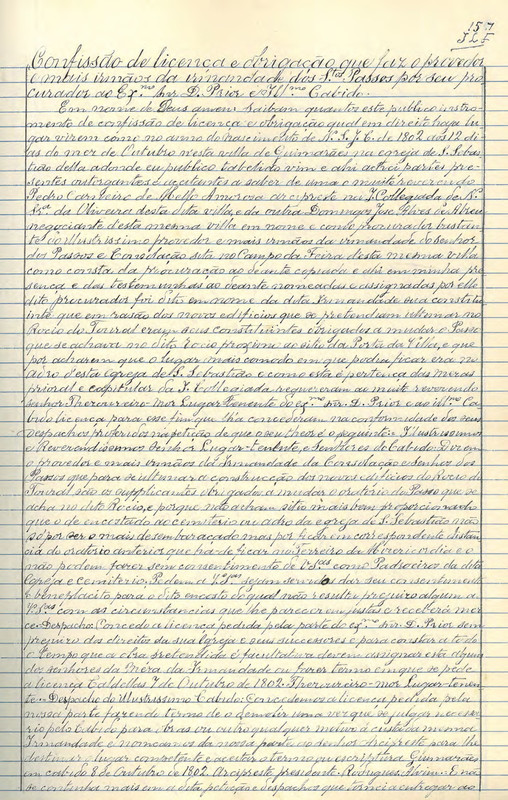 157
Confissão de licença e obrigação que faz o provedor
e mais irmãos da irmandade dos S.tos Passos por seu pro-
curador ao Ex.mo Snr. D. Prior e Ill.mo Cabido.
Em nome de Deus amen. Saibam quantos este publico instro-
mento de confissão de licença e obrigação qual em direito haja lu-
gar virem como no anno do nascimento de N. S. J. C. de 1802 aos 12 di-
as do mez de Outubro nesta villa de Guimarães na egreja de S. Sebas-
tião della adonde eu publico tabelião vim e ahi actrei partes pre-
sentes outorgantes e aceitantes a saber de uma o muito reverendo
Pedro Carneiro de Mello Amorosa arcipreste na J. Collegiada de N.
Sra da Oliveira desta dita villa, e da outra Domingos José Alves de Abreu
negociante desta mesma villa em nome e como procurador bastan-
te do illustrissimo provedor e mais irmãos da irmandade do Senhor
dos Passos e Consolação sita no Campo da Feira desta mesma villa
como consta da procuração ao deante copiada e ahi em minha pre-
sença e das testemunhas ao deante nomeadas e assignadas por elle
dito procurador foi dito em nome da dita Irmandade sua constitu-
inte que em rasão dos novos edificios que se pretendiam ultimar no
Rocio do Toural eram seus constituintes obrigados a mudar o Passo
que se achava no dito rocio proximo ao sitio da Porta da Villa, e que
por acharem que o lugar mais comodo em que podia ficar era no
adro desta egreja de S. Sebastião e como esta é pertença das mezas
prioral e capitular da J. Collegiada requereram ao muito reverendo
senhor Thezoureiro-mor Lugar Tenente do ex.mo snr. D. Prior e ao ill.mo Ca-
bido licença para esse fim que lha concederam na conformidade dos seus
despachos proferidos na petição de que o seu theor é o seguinte. Illustrissimos
e Reverendissimos Senhor Lugar-tenente, e Senhores do Cabido: Dizem
o provedor e mais irmãos da Irmandade da Consolação e Senhor dos
Passos que para se ultimar a construcção dos novos edificios do Rocio do
Toural são os supplicantes obrigados a mudar o oratorio do Passo que se
acha no dito Rocio, e porque não acham sitio mais bem proporcionado
que o de encostado ao cemiterio ou adro da egreja de S. Sebastião não
só por ser o mais desembaraçado mas por ficar em correspondente distan-
cia do oratorio anterior que ha-de ficar no Terreiro da Misericordia e o
não podem fazer sem consentimento de V. Sas como Padroeiros da dita
Egreja e cemiterio. Pedem a V. Sas sejam servidos dar seu consentimento
e beneplacito para o dito encosto do qual não resulta prejuizo algum a
V. Sas com as circumstancias que lhe parecerem justas e receberá mer-
ce. Despacho: Concedo a licença pedida pela parte do ex.mo snr. D. Prior sem
prejuizo dos direitos da sua Egreja e seus successores e para constar a todo
o tempo que a obra pretendida é facultativa devem assignar esta algum
dos senhores da Meza da Irmandade ou fazer termo em que se pede
a licença Caldellas 7 de Outubro de 1802. Thezoureiro-mor Lugar tenen-
te. Despacho do Illustrissimo Cabido: Concedemos a licença pedida pela
nossa parte fazendo termo de o demolir uma vez que se julgar necessa-
rio pelo Cabido para obras ou outro qualquer motivo á custa da mesma
Irmandade e nomeamos da nossa parte ao senhor Arcipreste para lhe
destinar o lugar competente e aceitar o termo ou escriptura Guimarães
em cabido 8 de Outubro de 1802. Arcipreste presidente. Rodrigues.
se continha mais em a dita petição e despachos que tornei a entregar ao